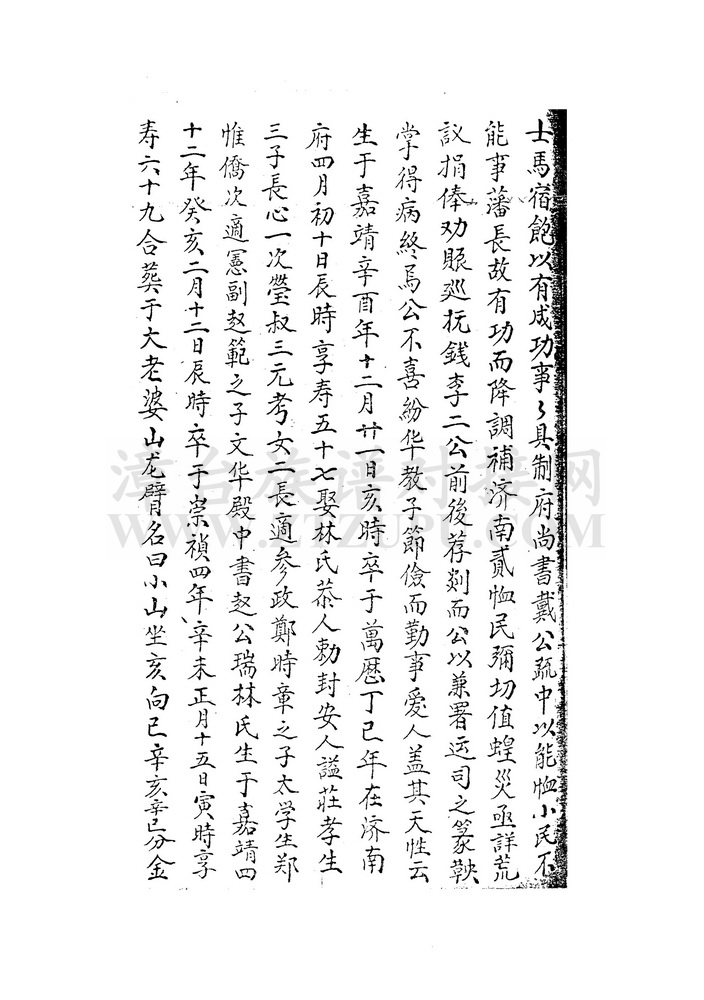 士馬宿飽以有成功事々具制府尚書戴公疏中以能恤小民不
能事藩長故有功而降調補济南貳恤民彌切值蝗災亟詳荒
議捐俸劝賑巡抚錢李二公前後荐剡而公以兼署运司之篆鞅
掌得病終焉公不喜紛华教子節儉而勤事爱人盖其天性云
生于嘉靖辛酉年十二月廿一日亥時卒于萬歷丁巳年在济南
府四月初十日辰時享寿五十七娶林氏恭人勅封安人謚莊孝生
三子長心一次瑩叔三元考女二長適參政鄭時章之子太学生郑
惟僑次適憲副赵範之子文华殿中書赵公瑞林氏生于嘉靖四
十二年癸亥二月十二日辰時卒于崇禎四年辛未正月十五日寅時享
寿六十九合葬于大老婆山龙臂名曰小山坐亥向巳辛亥辛巳分金
漳台族谱对接网
WWW.ZTZUPU.COM